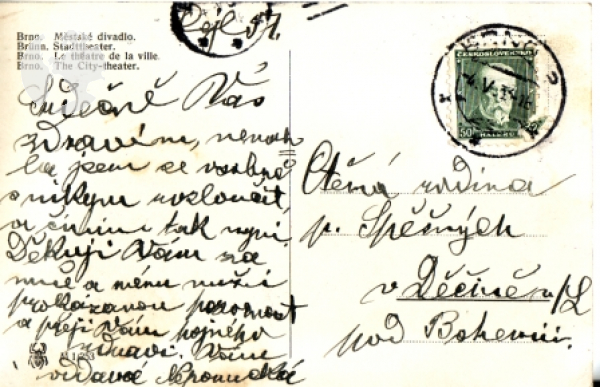 Brno. Městské divadlo.
Brünn. Stadttheater.
Brno. Le théatre de la ville.
Brno. The City-theater.
Srdečně Vás
zdravím, nemoh
la jsem se osobně
s nikým rozloučit,
a činím tak nyní.
Děkuji Vám za
mně a mému muži
prokázanou pozornost
a přeji Vám hojného
zdraví. Vám
oddaná
M 1253
ČESKOSLOVENSKO
50
HALÉŘŮ
BRNO 2
Ctěná rodina
p. Spěšných
v Děčíně n/L
pod Bohemií.